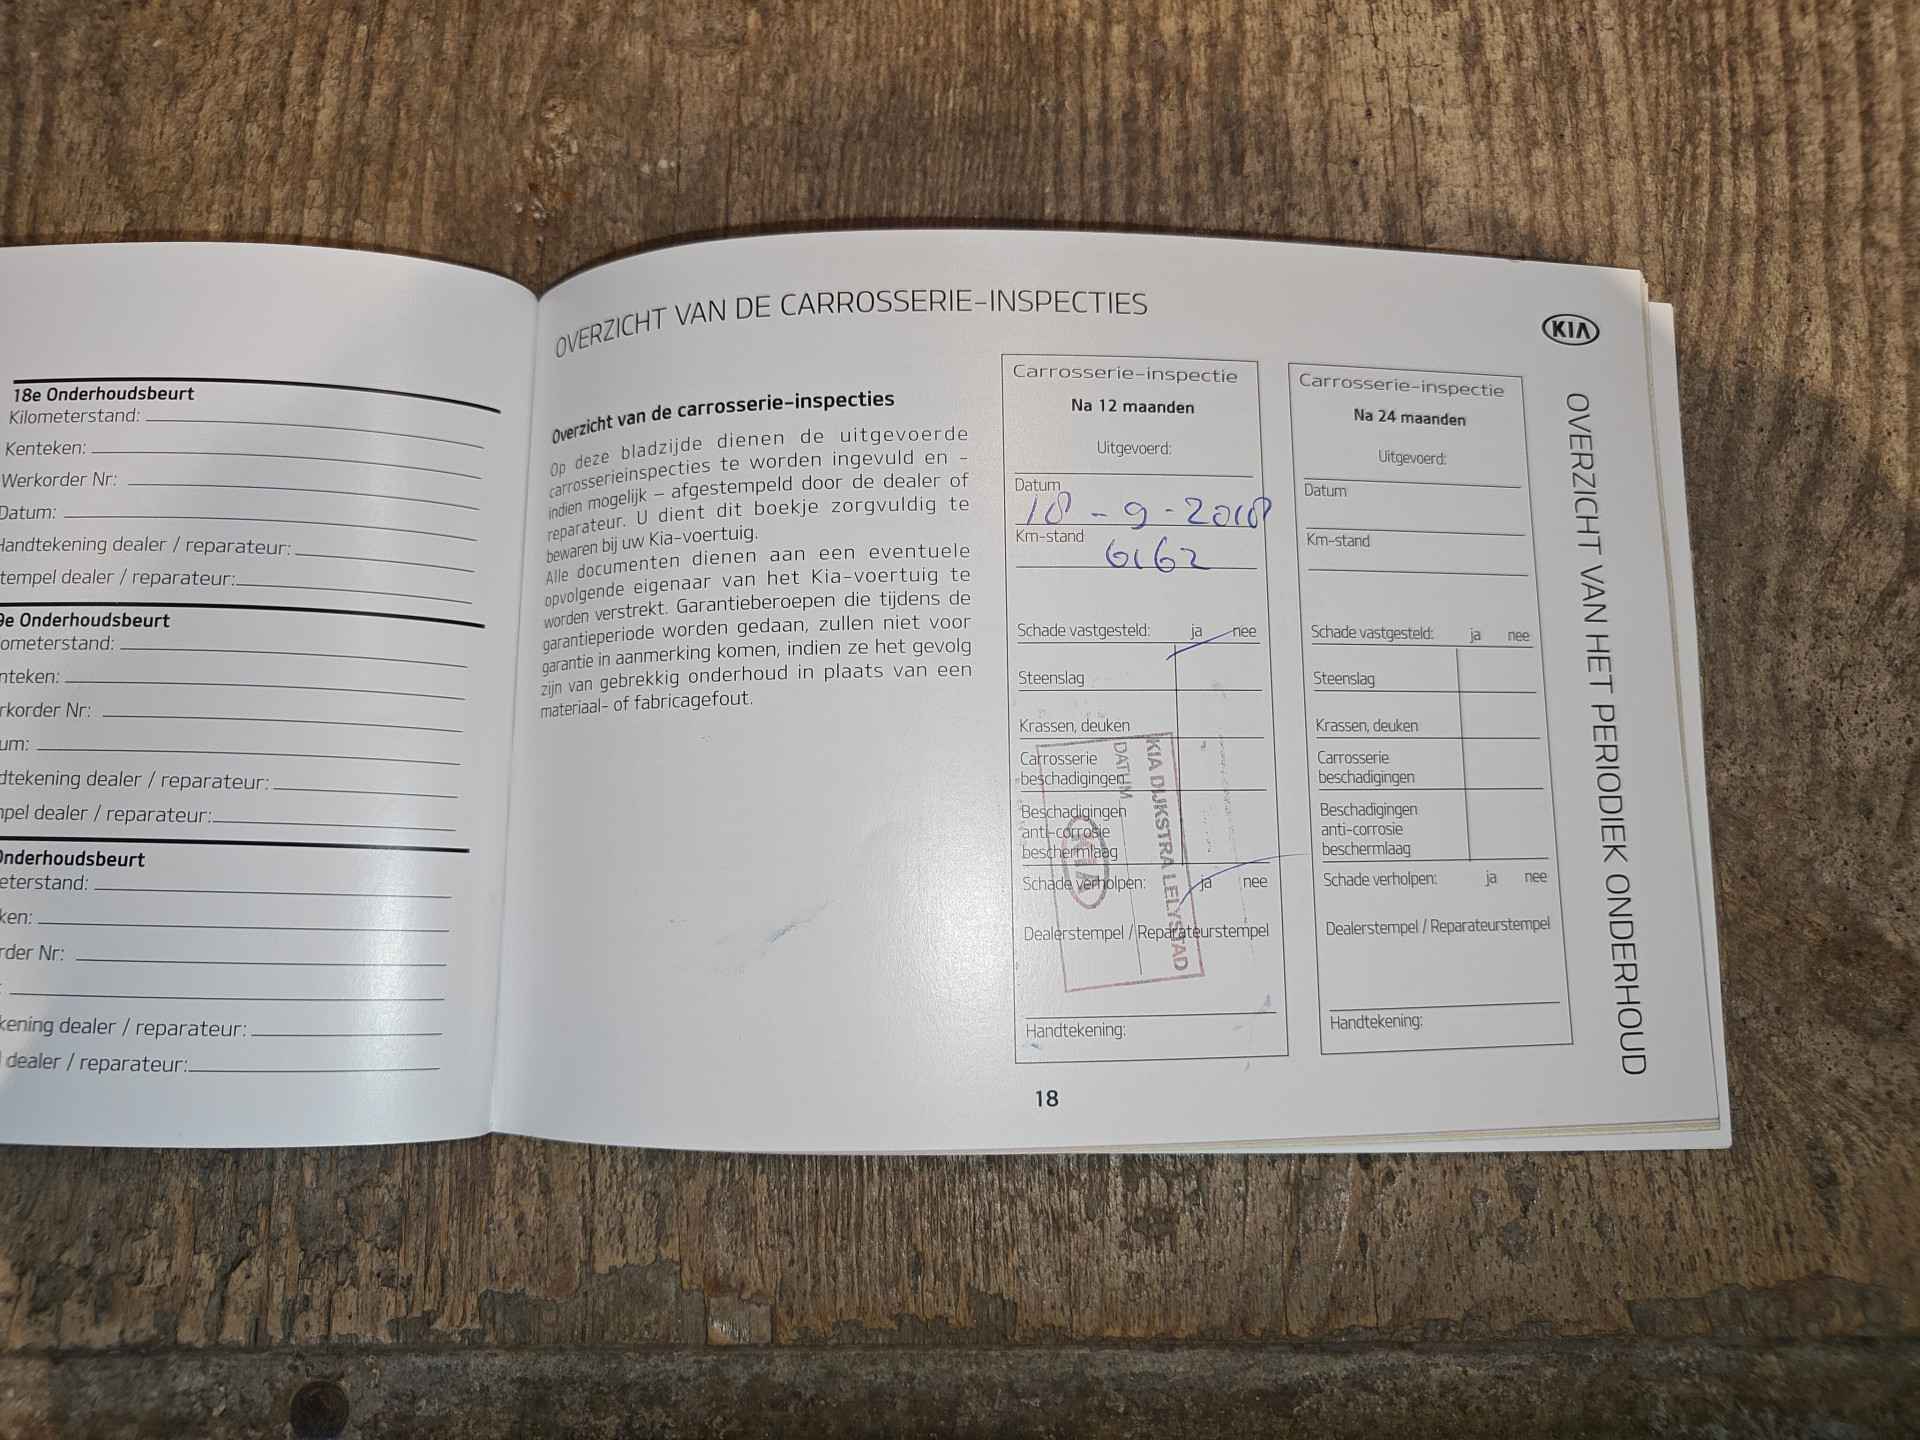 18e Onderhoudsbeurt
Kilometerstand:
Kenteken:
Werkorder Nr:
Datum:
Handtekening dealer / reparateur:
tempel dealer / reparateur:
9e Onderhoudsbeurt
ometerstand:
nteken:
rkorder Nr:
um:
dtekening dealer / reparateur:
npel dealer / reparateur:
Onderhoudsbeurt
eterstand:
ken:
rder Nr:
:
kening dealer / reparateur:
dealer / reparateur:
OVERZICHT VAN DE CARROSSERIE-INSPECTIES
Overzicht van de carrosserie-inspecties
Op deze bladzijde dienen de uitgevoerde
carrosserieinspecties te worden ingevuld en -
indien mogelijk – afgestempeld door de dealer of
reparateur. U dient dit boekje zorgvuldig te
bewaren bij uw Kia-voertuig.
Alle documenten dienen aan een eventuele
opvolgende eigenaar van het Kia-voertuig te
worden verstrekt. Garantieberoepen die tijdens de
garantieperiode worden gedaan, zullen niet voor
garantie in aanmerking komen, indien ze het gevolg
zijn van gebrekkig onderhoud in plaats van een
materiaal- of fabricagefout.
Carrosserie-inspectie
Na 12 maanden
Uitgevoerd:
Datum
18 - 9 - 2018
Km-stand
6162
Schade vastgesteld: ja nee
Steenslag
Krassen, deuken
Carrosserie
beschadigingen
Beschadigingen
anti-corrosie
beschermlaag
Schade verholpen: ja nee
Dealerstempel / Reparateurstempel
Handtekening:
KIA DIJKSTRA LELYSTAD
DATUM
KIA
Carrosserie-inspectie
Na 24 maanden
Uitgevoerd:
Datum
Km-stand
Schade vastgesteld: ja nee
Steenslag
Krassen, deuken
Carrosserie
beschadigingen
Beschadigingen
anti-corrosie
beschermlaag
Schade verholpen: ja nee
Dealerstempel / Reparateurstempel
Handtekening:
KIA
OVERZICHT VAN HET PERIODIEK ONDERHOUD
18